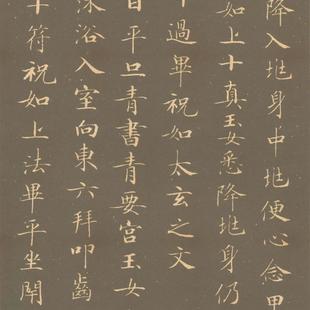 降入地身中地便心念甲
如上十真玉女悉降地身仍
過畢祝如太玄之文
日平旦青書青要宮玉女
沐浴入室向東六拜叩齒
十符祝如上法畢平坐閉